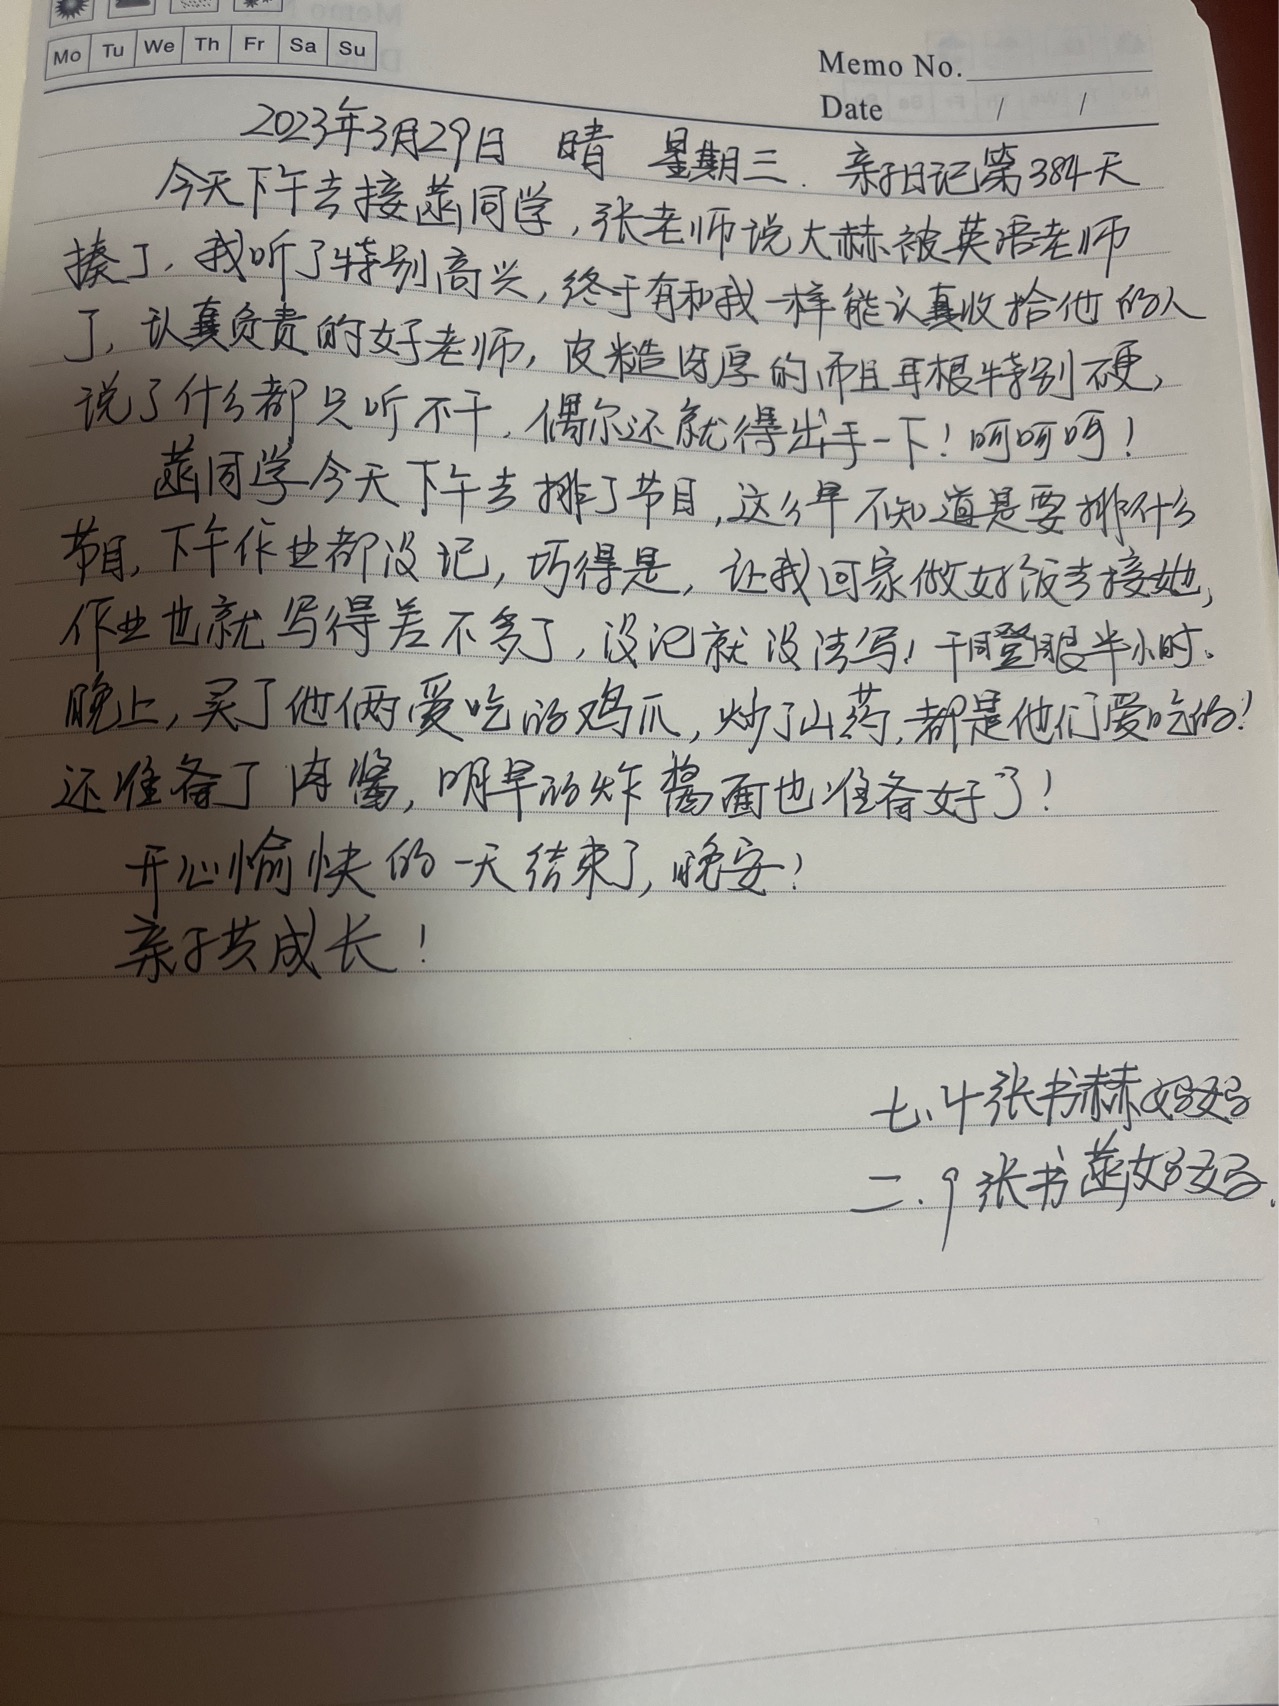 Mo Tu We Th Fr Sa Su
Memo No.
Date / /
2023年3月29日 晴 星期三. 亲子日记第384天
今天下午去接菡同学,张老师说大赫被英语老师
揍了,我听了特别高兴,终于有和我一样能认真收拾他的人
了,认真负责的好老师,皮糙肉厚的而且耳根特别硬,
说了什么都只听不干,偶尔还就得出手一下!呵呵呵!
菡同学今天下午去排了节目,这么早不知道是要排什么
节目,下午作业都没记,巧得是,让我回家做好饭去接她,
作业也就写得差不多了,没记就没法写,干瞪眼半小时.
晚上,买了他俩爱吃的鸡爪,炒了山药,都是他们爱吃的!
还准备了肉酱,明早的炸酱面也准备好了!
开心愉快的一天结束了,晚安!
亲子共成长!
七.4张书赫妈妈
二.9张书菡妈妈.